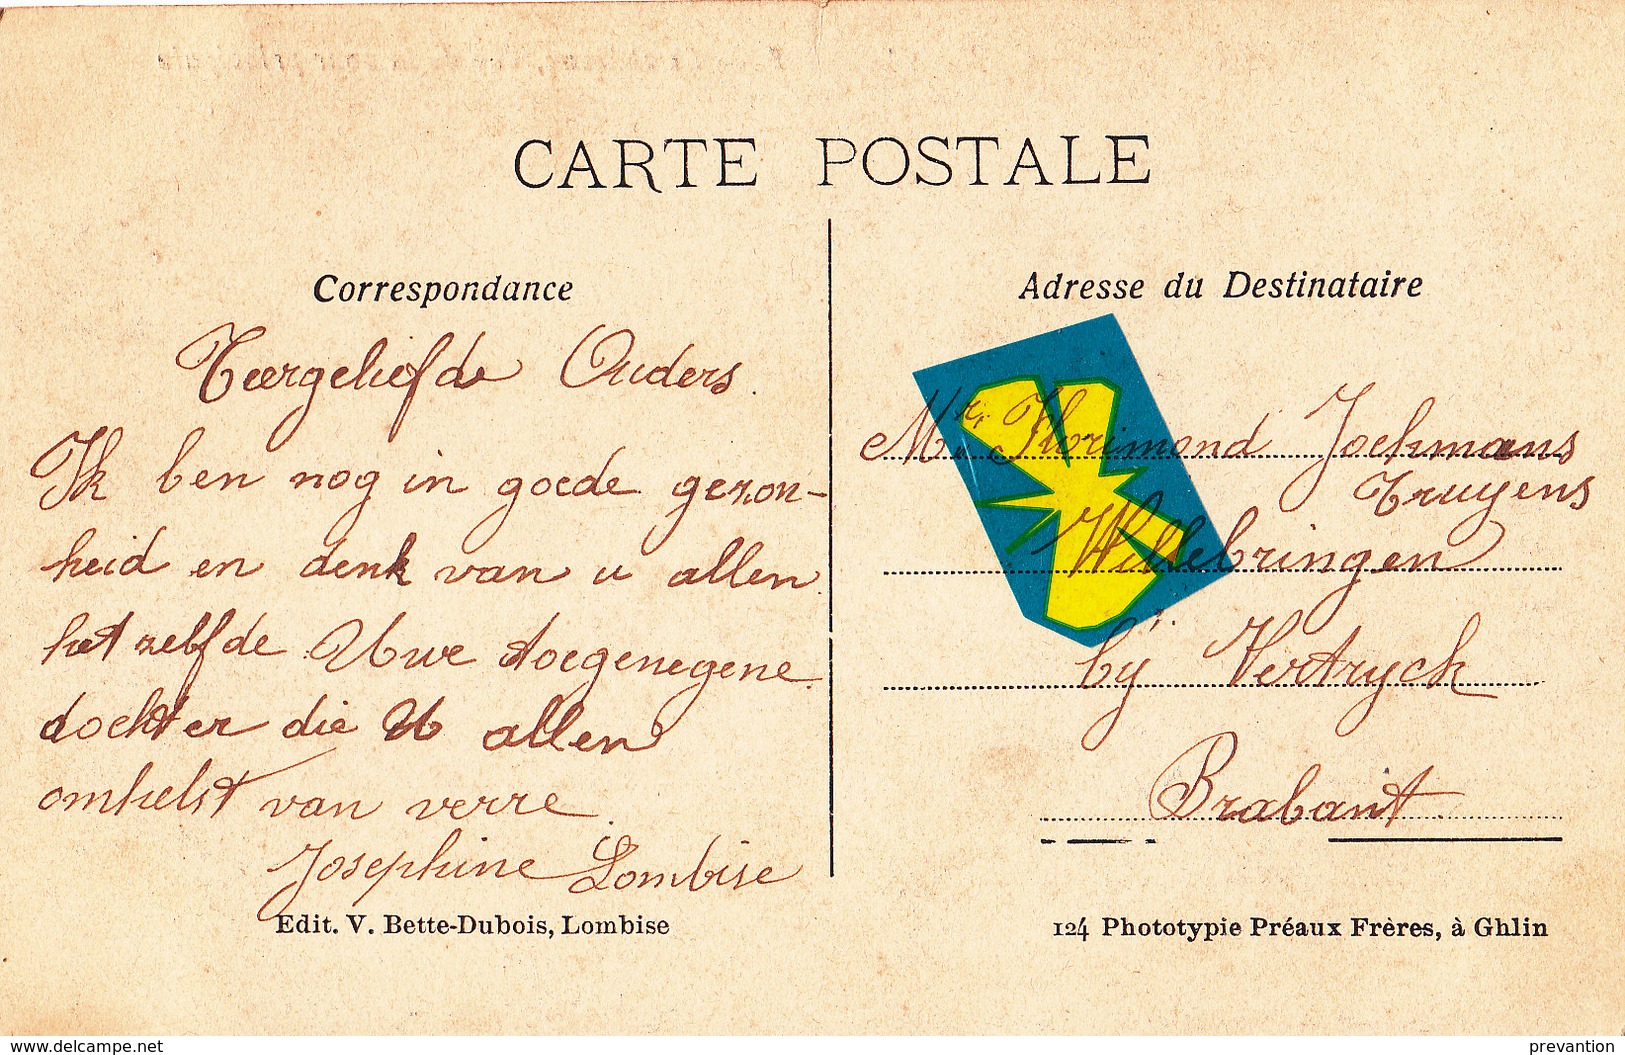 CARTE POSTALE
Correspondance
Teergeliefde Ouders.
Ik ben nog in goede gezon-
heid en denk van u allen
het zelfde Uwe toegenegene
dochter die U allen
omhelst van verre.
Josephine Lombise
Edit. V. Bette-Dubois, Lombise
Adresse du Destinataire
Florimond Joekmans
Truyens
Willebringen
by Vertryck
Brabant.
124 Phototypie Préaux Frères, à Ghlin
delcampe.net
prevantion